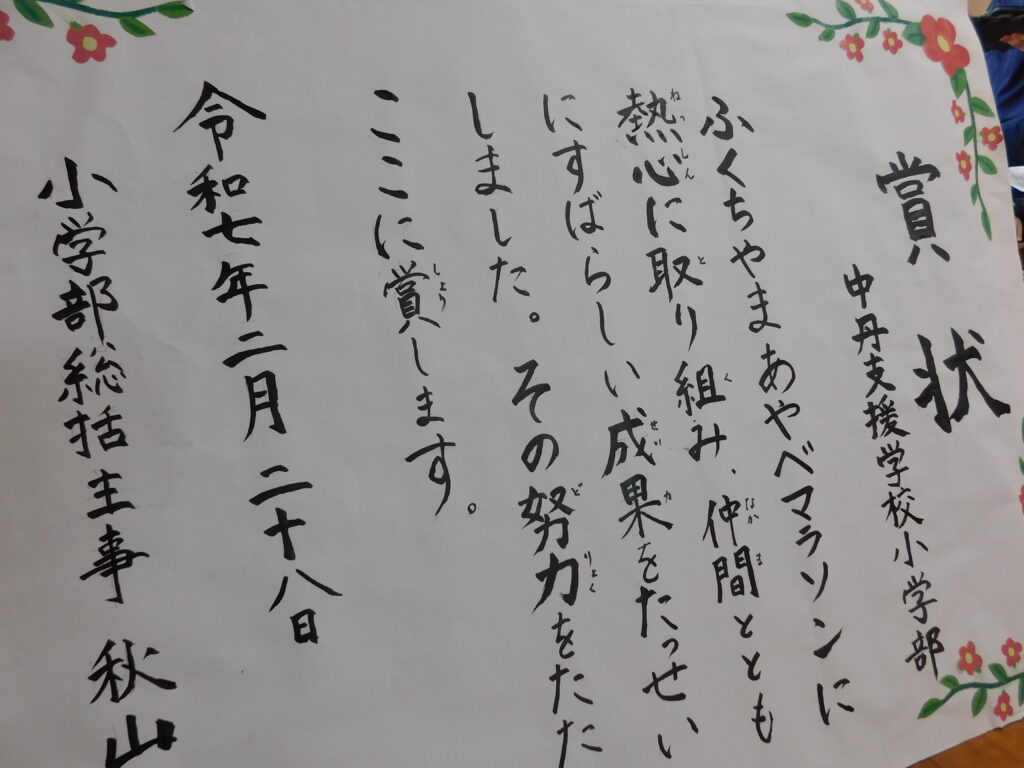 賞状
中丹支援学校小学部
ふくちやまあやべマラソンに
熱心に取り組み、仲間ととも
にすばらしい成果をたっせい
しました。その努力をたた
ここに賞します。
令和七年二月二十八日
小学部総括主事 秋山